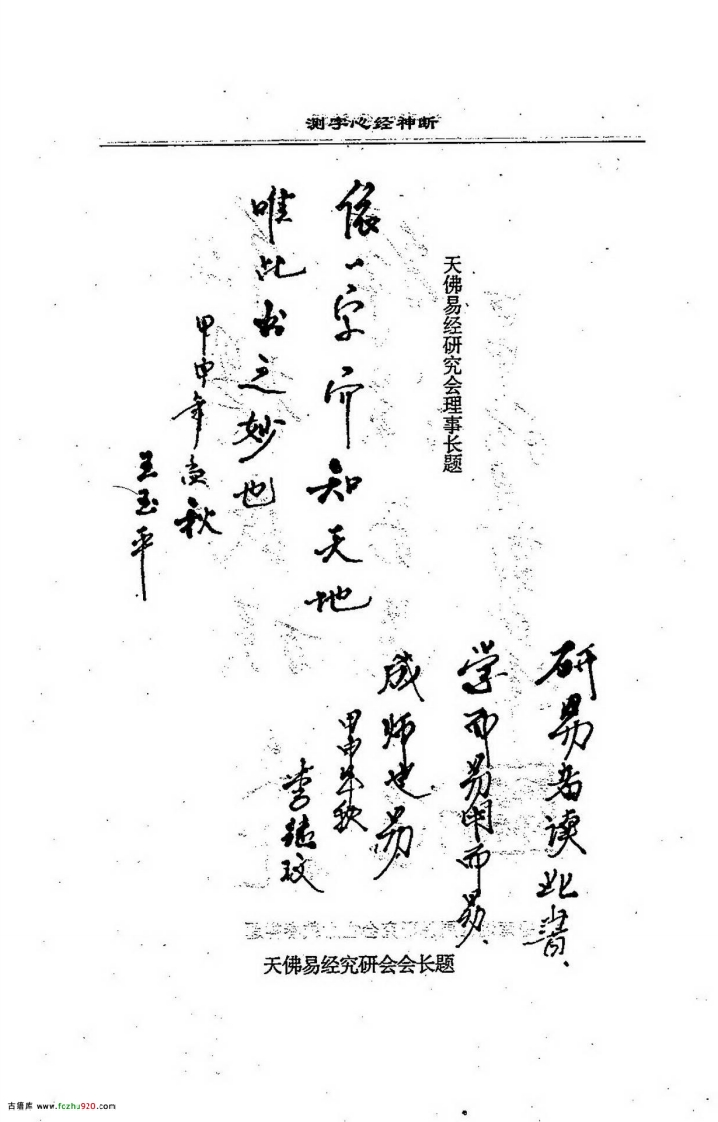 测字心经神断
天佛易经研究会理事长题
依一字而知天地
唯此书之妙也
甲申年孟秋
王玉平
研易者读此书、
学而易用而易、
成师也易
甲申年秋
李
玟
天佛易经究研会会长题
古籍库 www.fczhu920.com